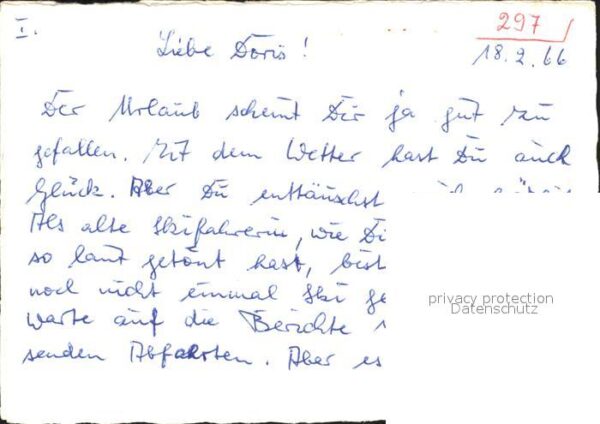 I.
297
Liebe Doris!
18.2.66
Der Urlaub scheint Dir ja gut zu
gefallen. Mit dem Wetter hast Du auch
Glück. Aber Du enttäuschst
Als alte Skifahrerin, wie Di
so laut getönt hast, bist
noch nicht einmal Ski ge
warte auf die Berichte
senden Abfahrten. Aber es
privacy protection
Datenschutz